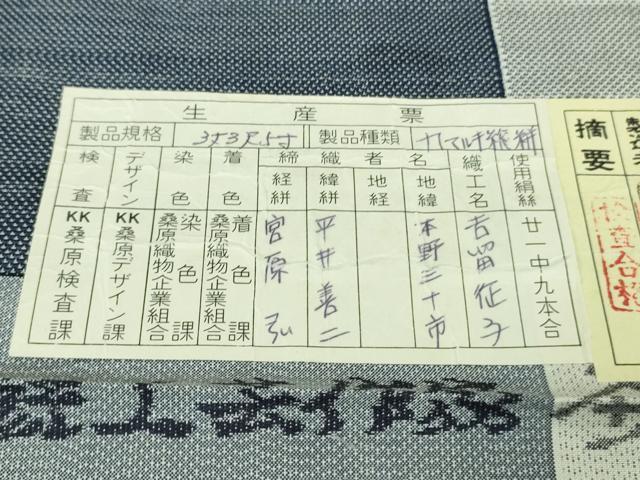 生産票
製品規格 3丈3尺5寸 製品種類
検査 デザイン 染色 着色 締織者名 織工名 使用絹糸
経絣 緯絣 地経 地緯
KK桑原検査課
KK桑原デザイン課
桑原織物企業組合 染色課
桑原織物企業組合 着色課
宮原 弘
平井善二
本野三十市
吉留征子
廿一中九本合
摘要
検査合格